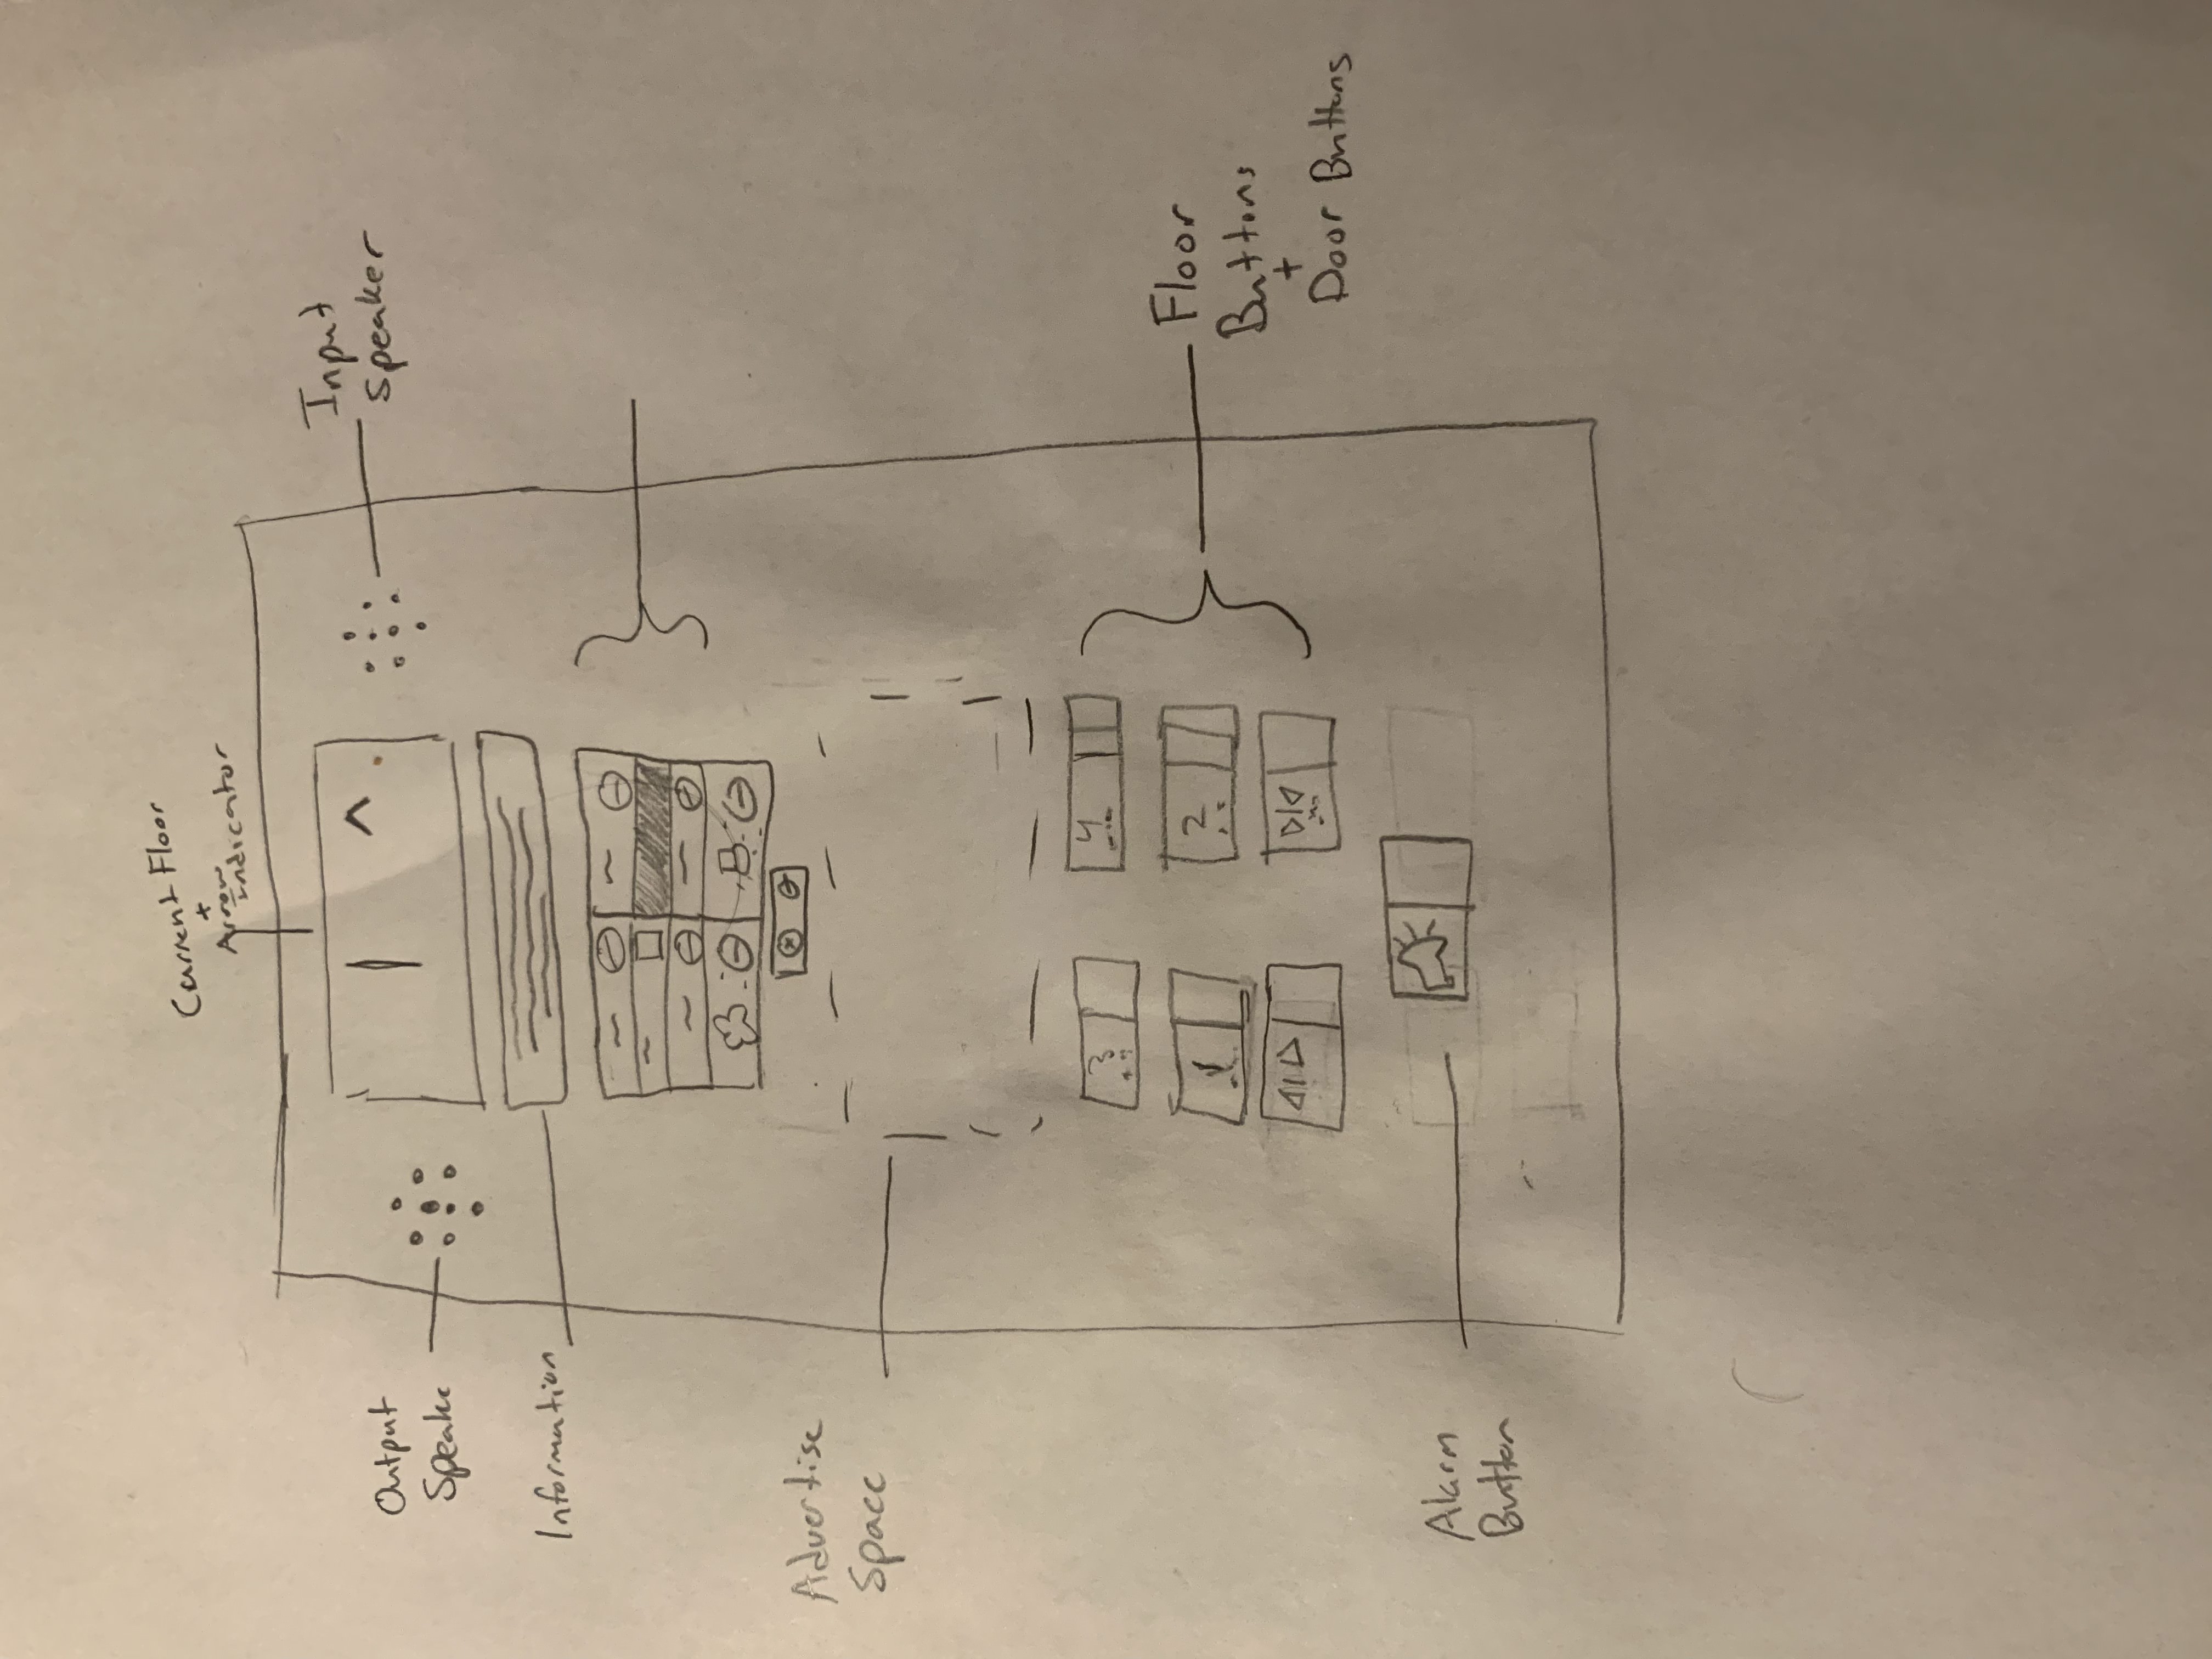 Current Floor
+
Arrow
Indicator
Input
Speaker
Output
Speake
Information
1 ^
Advertise
Space
3
4
1
2
Floor
Buttons
+
Door Buttons
Alarm
Button